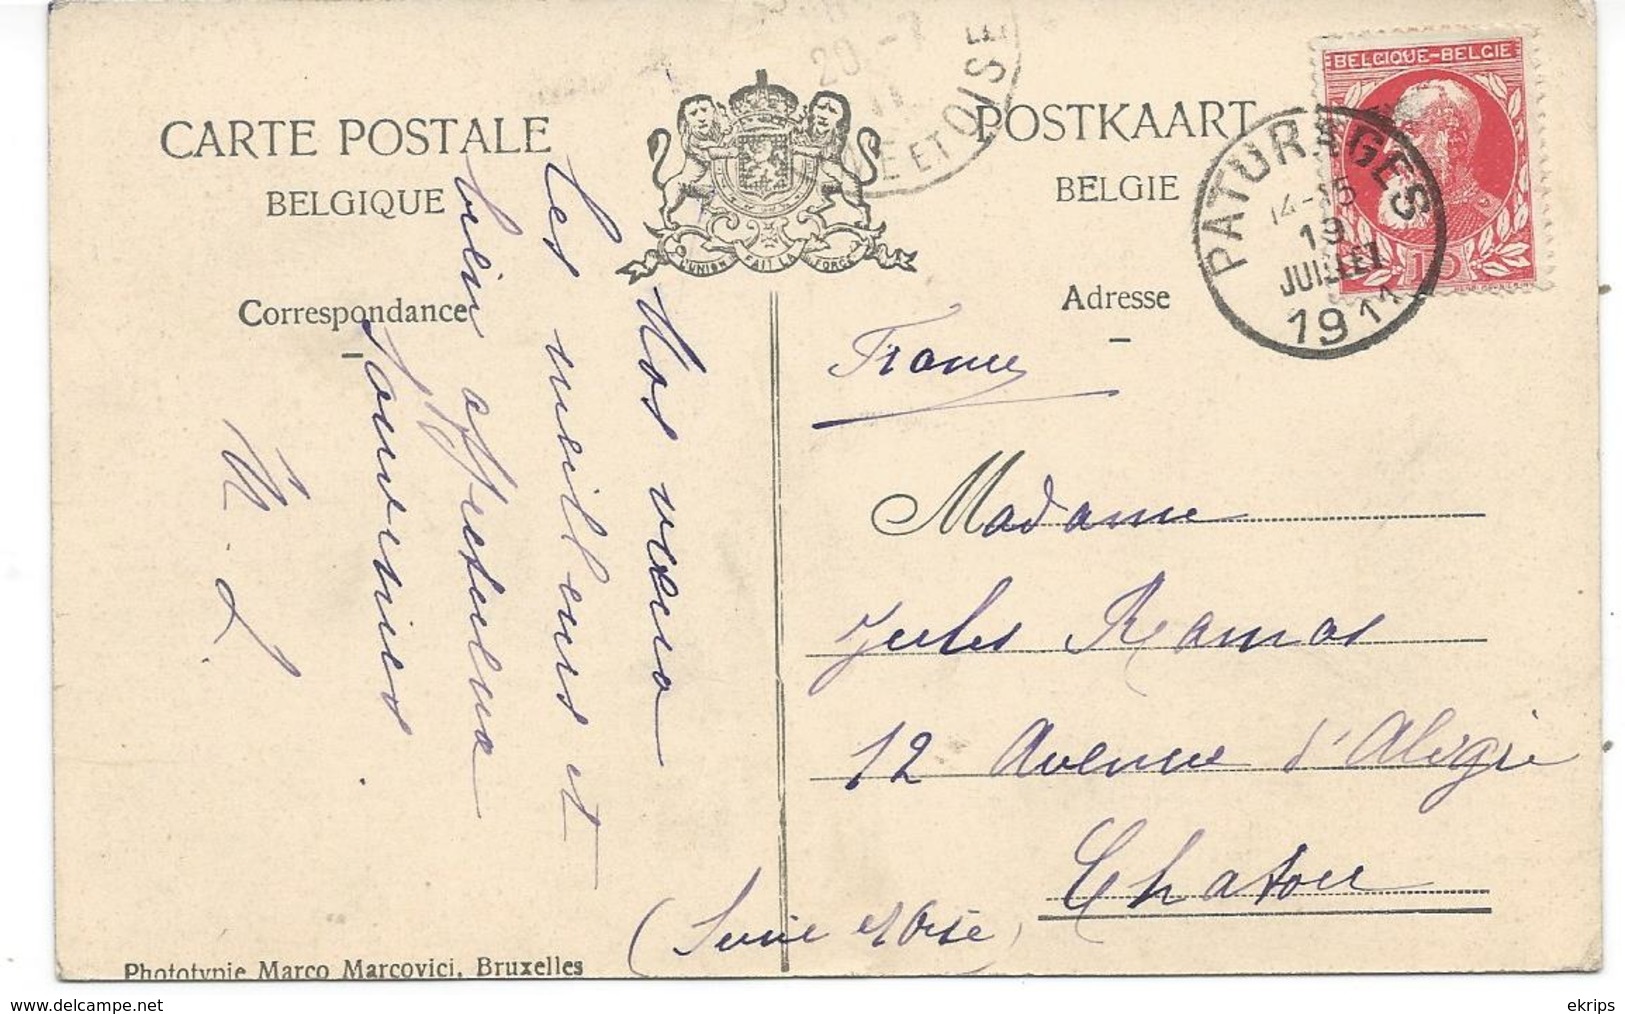 CARTE POSTALE
BELGIQUE
Correspondance
L'UNION FAIT LA FORCE
POSTKAART
BELGIE
Adresse
20 - 7
11
ET OISE
BELGIQUE-BELGIE
10
PATURAGES
14-15
19
JUILLET
1911
Nos vœux
les meilleurs et
bien affectueux
souvenirs
M. L.
France
Madame
Jules Ramas
12 Avenue d'Aligre
Chatou
(Seine et Oise)
Phototypie Marco Marcovici, Bruxelles
www.delcampe.net
ekrips